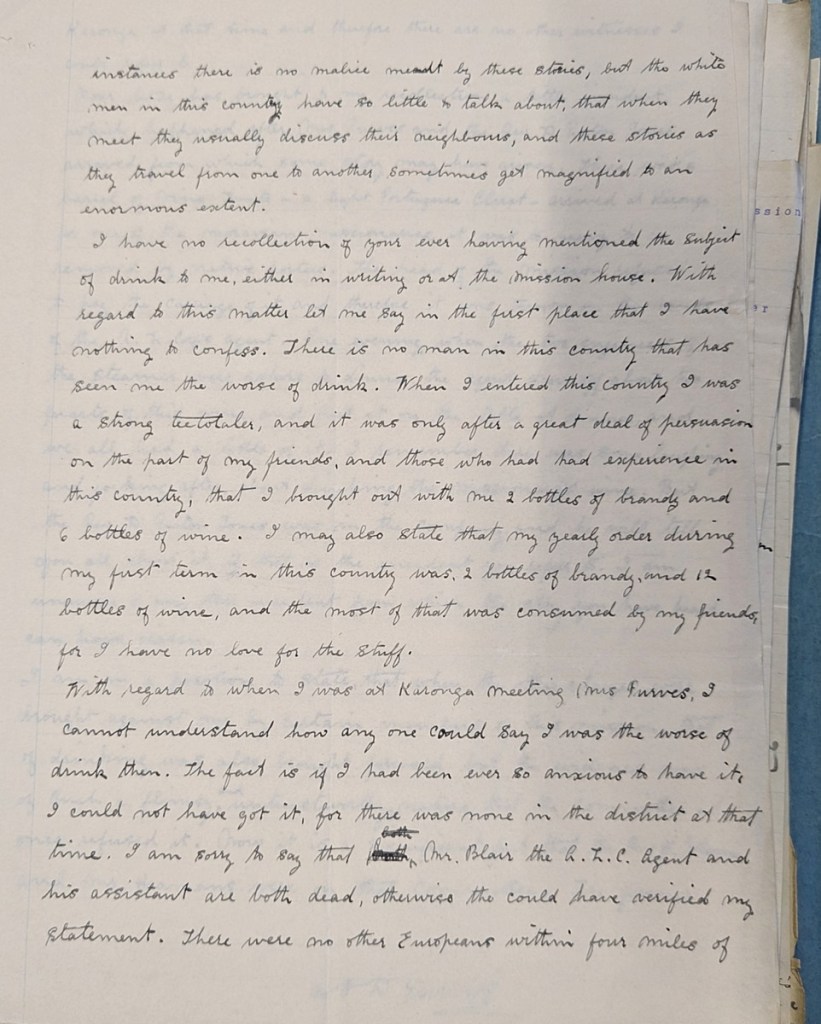 instances there is no malice meant by these stories, but the white
men in this country have so little to talk about, that when they
meet they usually discuss their neighbours, and these stories as
they travel from one to another sometimes get magnified to an
enormous extent.
I have no recollection of your ever having mentioned the subject
of drink to me, either in writing or at the mission house. With
regard to this matter let me say in the first place that I have
nothing to confess. There is no man in this country that has
seen me the worse of drink. When I entered this country I was
a strong teetotaler, and it was only after a great deal of persuasion
on the part of my friends, and those who had had experience in
this country, that I brought out with me 2 bottles of brandy and
6 bottles of wine. I may also state that my yearly order during
my first term in this country was, 2 bottles of brandy, and 12
bottles of wine, and the most of that was consumed by my friends,
for I have no love for the stuff.
With regard to when I was at Karonga meeting Mrs Purves, I
cannot understand how any one could say I was the worse of
drink then. The fact is if I had been ever so anxious to have it,
I could not have got it, for there was none in the district at that
time. I am sorry to say that both Mr. Blair the A.L.C. Agent and
his assistant are both dead, otherwise the could have verified my
statement. There were no other Europeans within four miles of
ssion